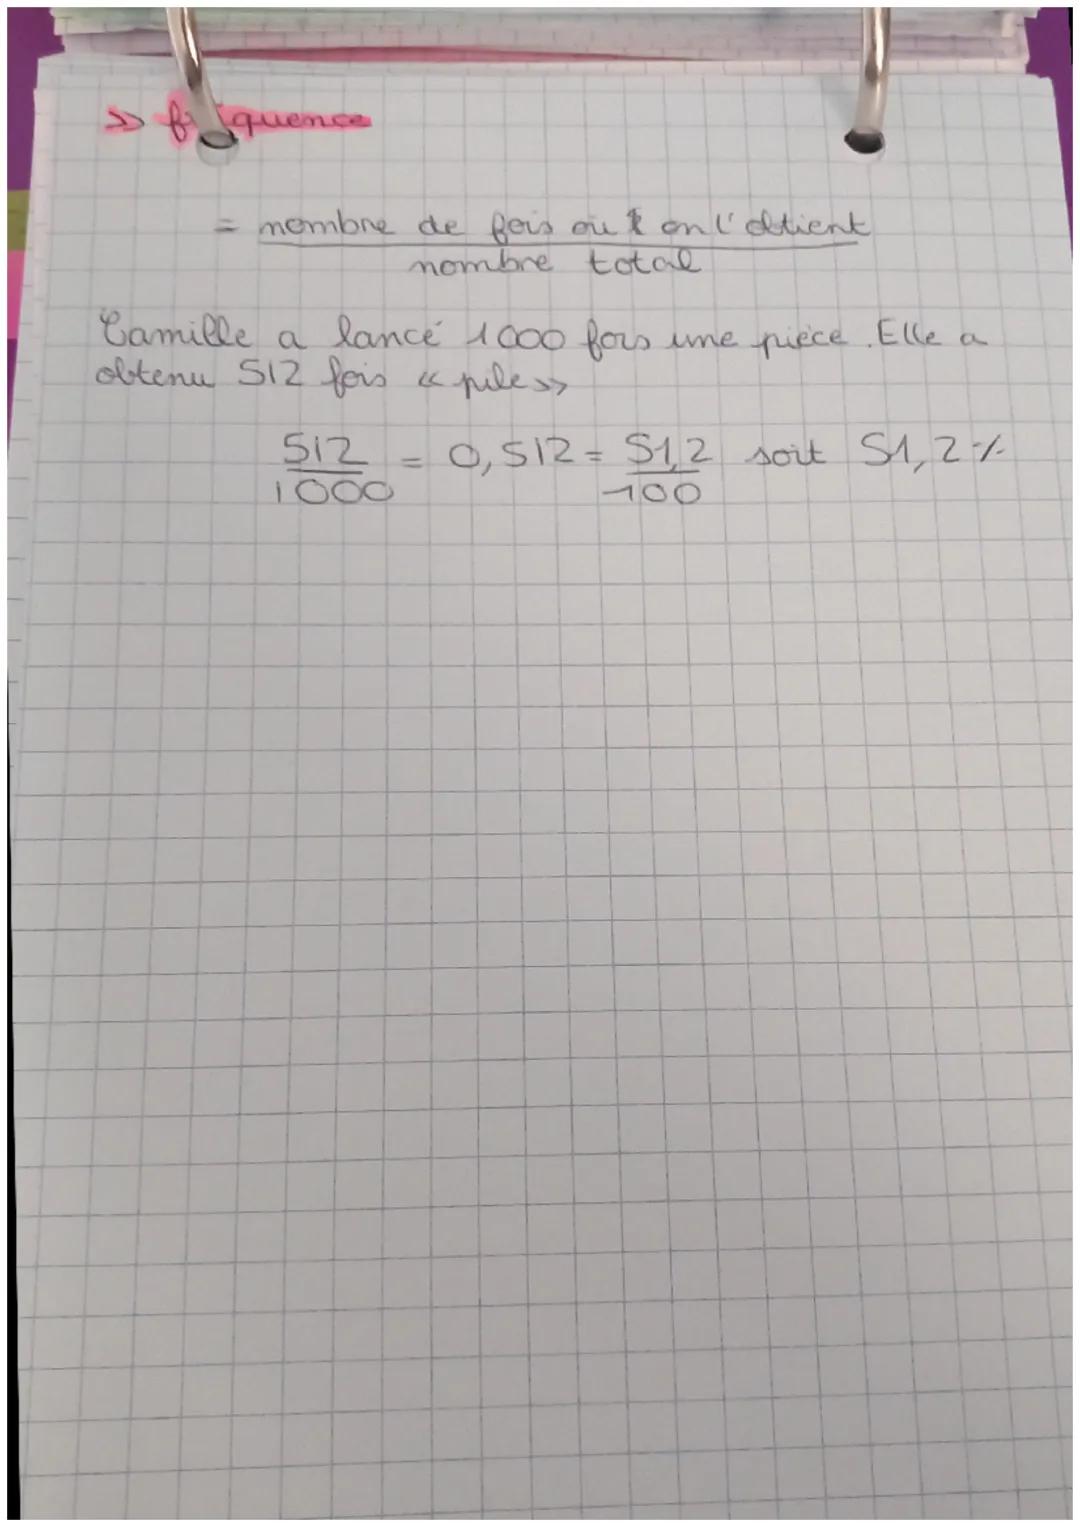 >> fréquence
= nombre de fois où on l'obtient
nombre total
Camille a lancé 1000 fois une pièce. Elle a
obtenu 512 fois « pile »
512 = 0,512 = 51,2 soit 51,2 %
1000 100